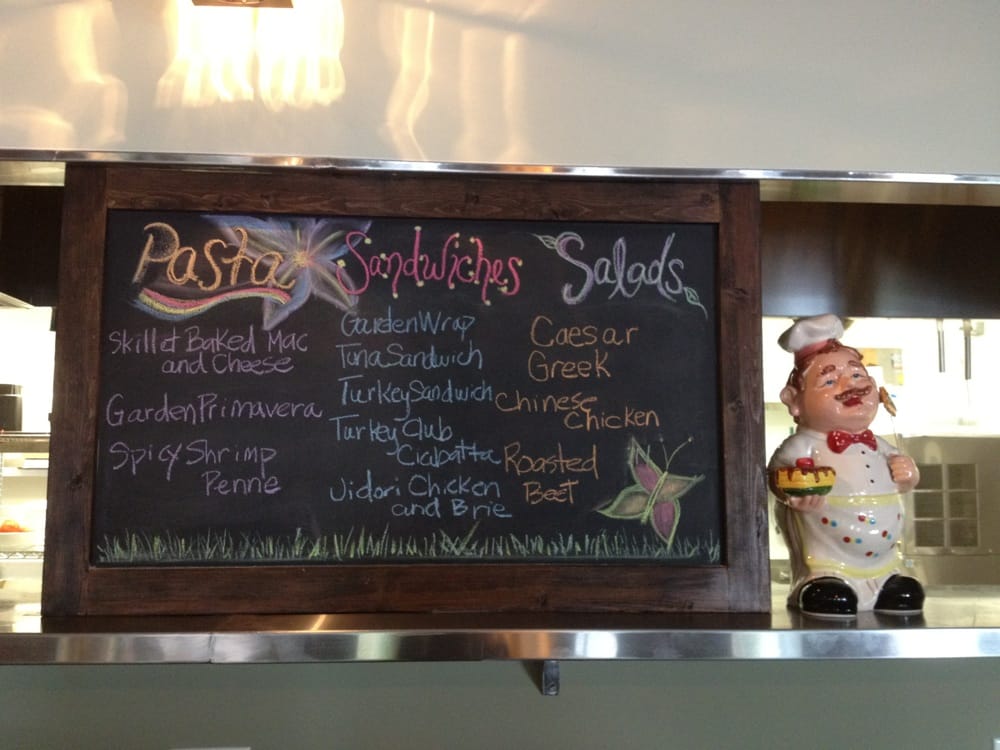 Pasta
Skillet Baked Mac
and Cheese
Garden Primavera
Spicy Shrimp
Penne
Sandwiches
Garden Wrap
Tuna Sandwich
Turkey Sandwich
Turkey Club
Ciabatta
Jidori Chicken
and Brie
Salads
Caesar
Greek
Chinese
Chicken
Roasted
Beet